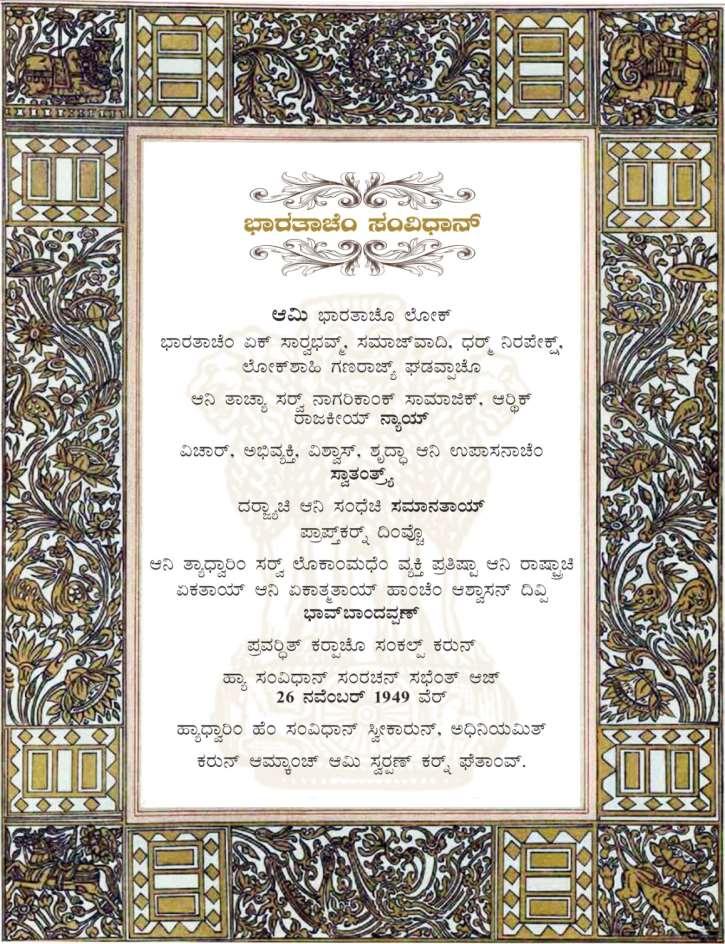 ಭಾರತಾಚೆಂ ಸಂವಿಧಾನ್
ಆಮಿ ಭಾರತಾಚೊ ಲೋಕ್
ಭಾರತಾಚೆಂ ಏಕ್ ಸಾರ್‍ವಭವ್ಮ್, ಸಮಾಜ್‌ವಾದಿ, ಧರ್‍ಮ್ ನಿರಪೇಕ್ಷ್,
ಲೋಕ್‌ಶಾಹಿ ಗಣರಾಜ್ಯ್ ಘಡವ್ಪಾಚೊ
ಆನಿ ತಾಚ್ಯಾ ಸರ್‍ವ್ ನಾಗರಿಕಾಂಕ್ ಸಾಮಾಜಿಕ್, ಆರ್‍ಥಿಕ್
ರಾಜಕೀಯ್ ನ್ಯಾಯ್
ವಿಚಾರ್, ಅಭಿವ್ಯಕ್ತಿ, ವಿಶ್ವಾಸ್, ಶೃದ್ಧಾ ಆನಿ ಉಪಾಸನಾಚೆಂ
ಸ್ವಾತಂತ್ರ್ಯ್
ದರ್‍ಜ್ಯಾಚಿ ಆನಿ ಸಂಧೆಚಿ ಸಮಾನತಾಯ್
ಪ್ರಾಪ್ತ್‌ಕರ್‍ನ್ ದಿಂವ್ಚೊ
ಆನಿ ತ್ಯಾಧ್ವಾರಿಂ ಸರ್‍ವ್ ಲೊಕಾಂಮಧೆಂ ವ್ಯಕ್ತಿ ಪ್ರತಿಷ್ಠಾ ಆನಿ ರಾಷ್ಟ್ರಾಚಿ
ಏಕತಾಯ್ ಆನಿ ಏಕಾತ್ಮತಾಯ್ ಹಾಂಚೆಂ ಆಶ್ವಾಸನ್ ದಿವ್ಪಿ
ಭಾವ್‌ಬಾಂದವ್ಪಣ್
ಪ್ರವರ್‍ಧಿತ್ ಕರ್‍ಪಾಚೊ ಸಂಕಲ್ಪ್ ಕರುನ್
ಹ್ಯಾ ಸಂವಿಧಾನ್ ಸಂರಚನ್ ಸಭೆಂತ್ ಆಜ್
26 ನವೆಂಬರ್ 1949 ವೆರ್
ಹ್ಯಾಧ್ವಾರಿಂ ಹೆಂ ಸಂವಿಧಾನ್ ಸ್ವೀಕಾರುನ್, ಅಧಿನಿಯಮಿತ್
ಕರುನ್ ಆಮ್ಕಾಂಚ್ ಆಮಿ ಸ್ವರ್‍ಪಣ್ ಕರ್‍ನ್ ಘೆತಾಂವ್.